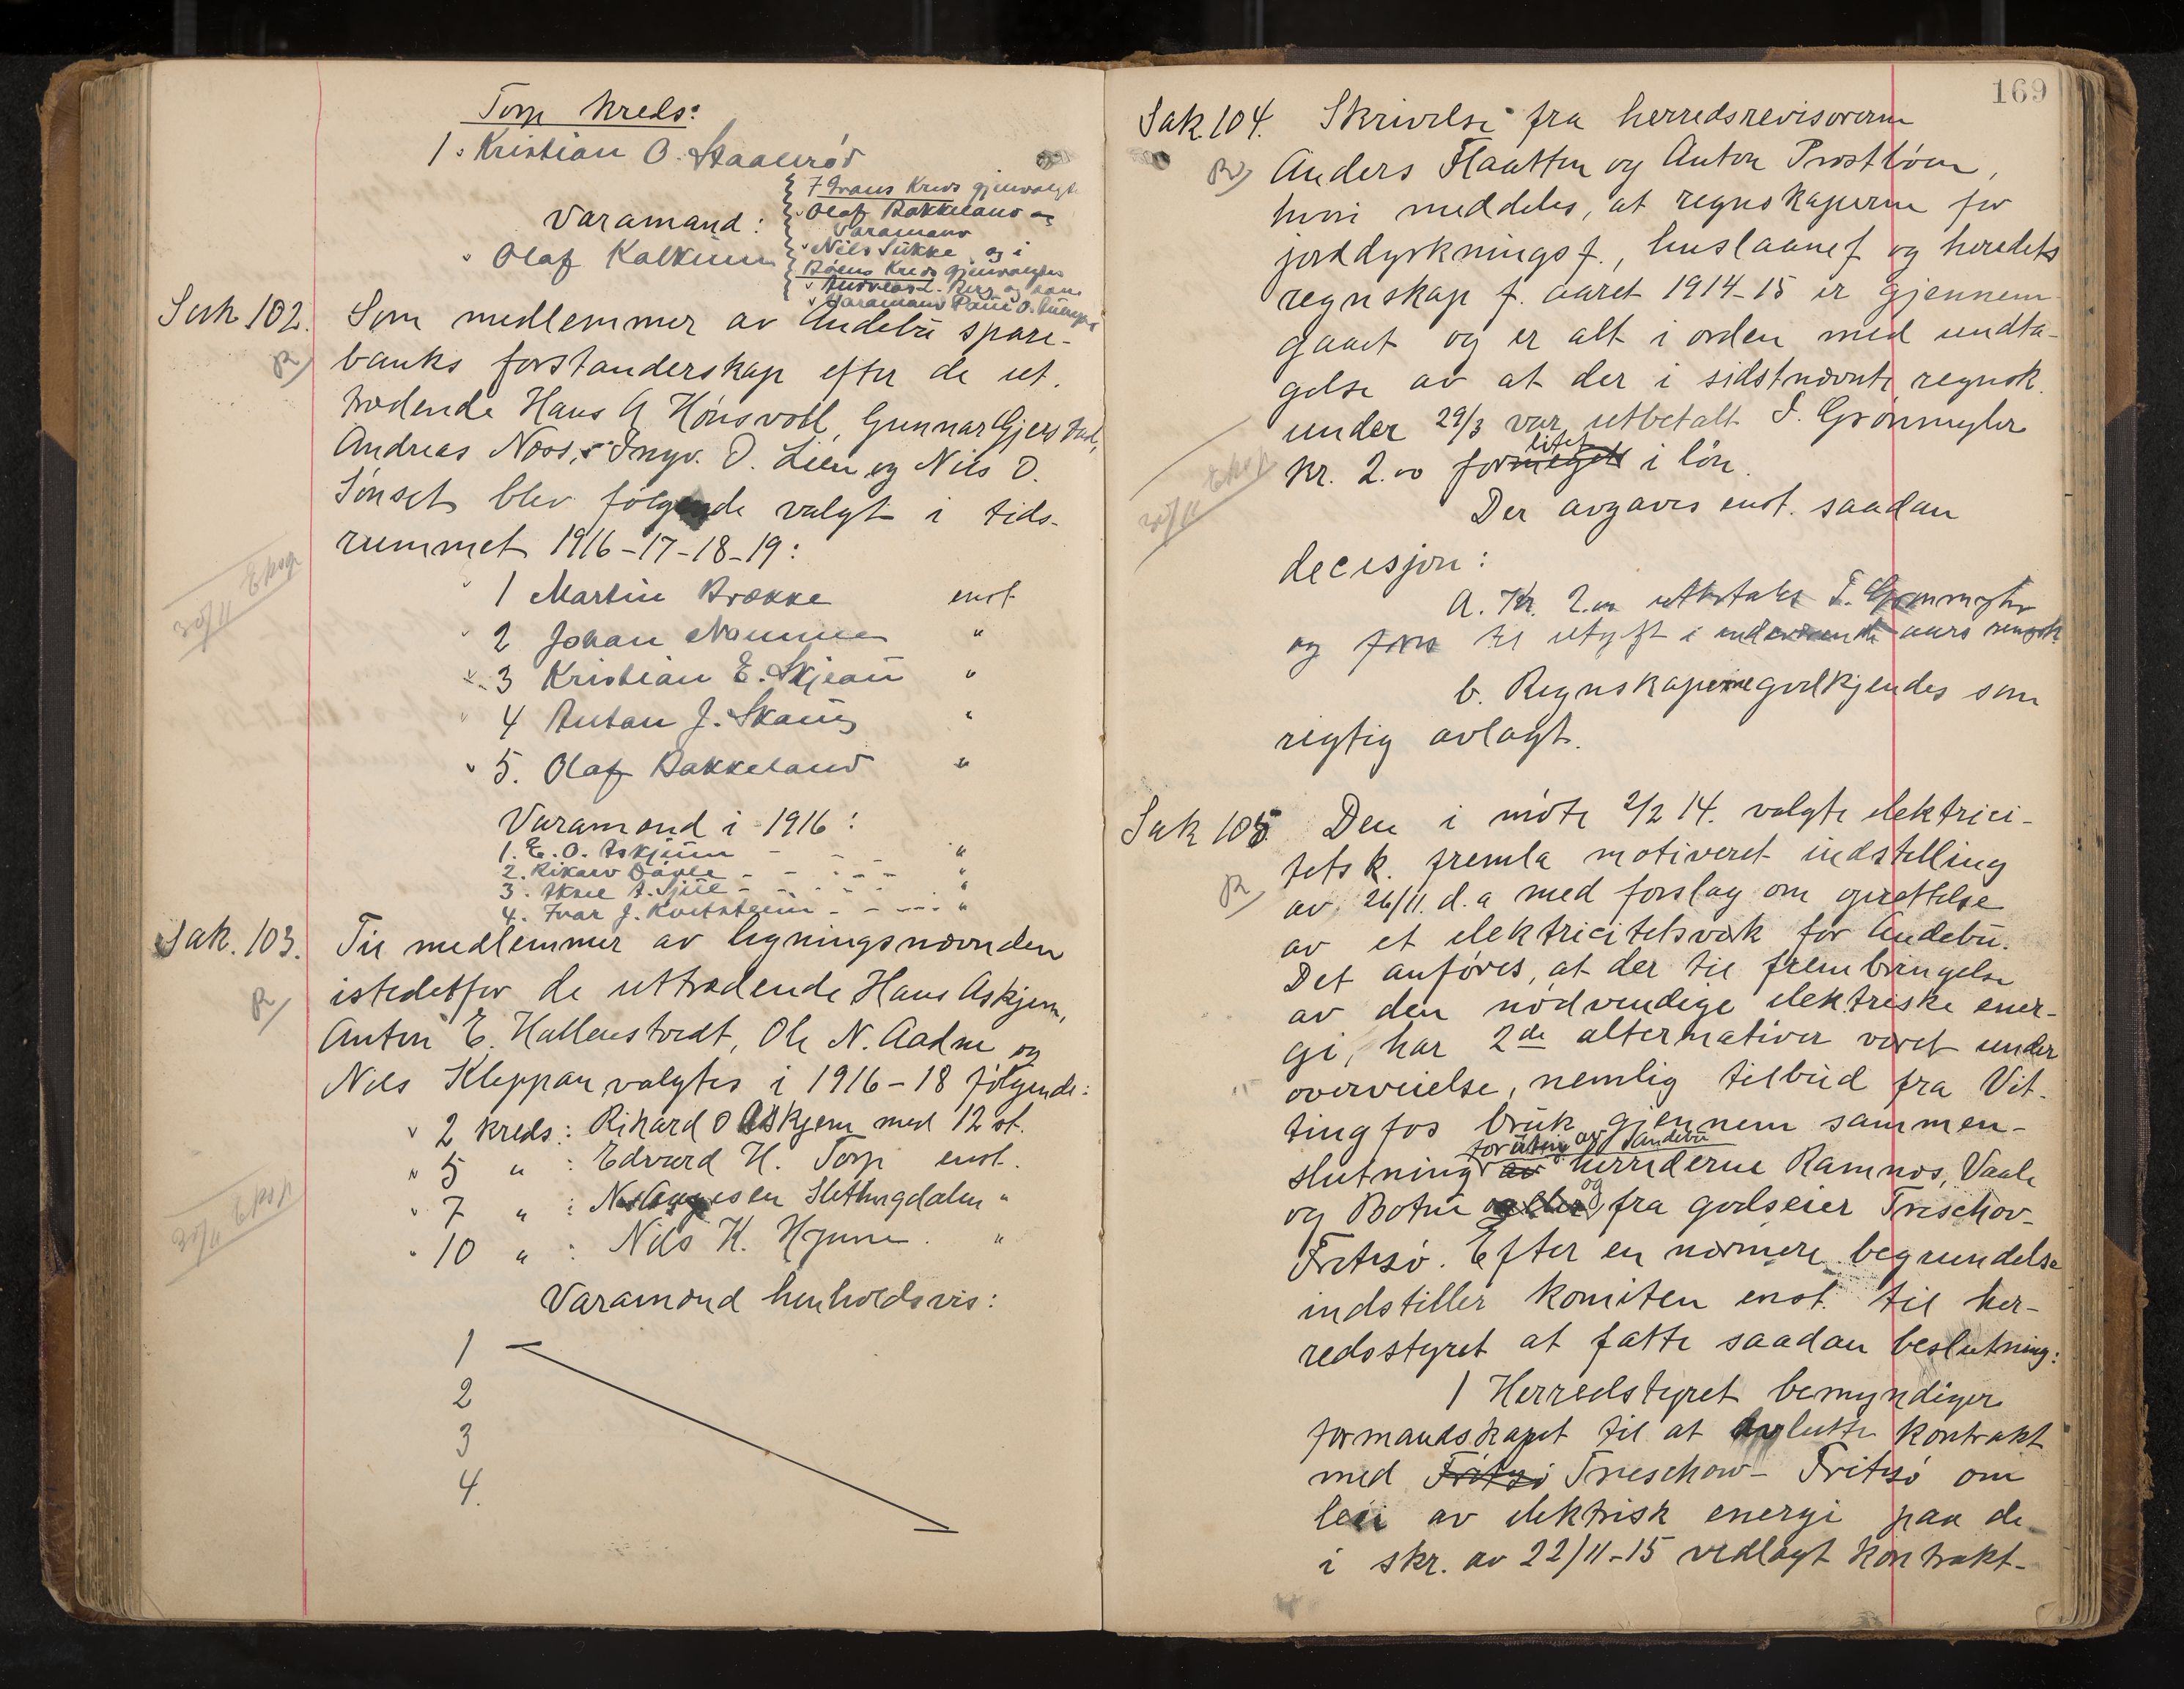 Torp kreds:
1. Kristian O. Skaalerød
7 Ivans Kreds gjenvalgt
Olaf Bakkeland og
Varamand
Varamand:
Nils Sukke og i
Olaf Kalkinn
Bøens Kreds gjenvalgtes
Andreas L. Berg og som
Varamand Paul O.
Sak 102.
Som medlemmer av Andebu spare-
banks forstanderskap efter de ut.
trædende Hans A Hønsvold, Gunnar Gjerstad,
Andreas Næss, Ingv. O. Lien og Nils O.
Sønset blev følgende valgt i tids-
rummet 1916-17-18-19:
30/11 Eksp
1 Martin Brække enst
2 Johan Namme "
3 Kristian E. Skjeau "
4 Anton J. Skaug "
5. Olaf Bakkeland "
Varamænd i 1916:
1. E. O. Askjum - - - "
2. Rikard Døvle - - - - "
3. Aksel A. Sjue - - - - "
4. Ivar J. Kvitstein - - - - "
Sak. 103.
Til medlemmer av ligningsnævnden
istedetfor de uttrædende Hans Askjem,
Anton E. Hallenstvedt, Ole N. Aadne og
Nils Kleppan valgtes i 1916-18 følgende:
2 kreds: Rikard O Askjem med 12 st.
5 " : Edvard H. Torp enst.
7 " : Slettingdalen "
10 " : Nils H. Hynne. "
30/11 Eksp
Varamænd henholdsvis:
1
2
3
4.
169
Sak. 104. Skrivelse fra herredsrevisorerne
Anders Flaatten og Anton Prestbøen,
hvori meddeles, at regnskaperne for
jorddyrkningsf., huslaanef og heredets
regnskap f. aaret 1914-15 er gjennem
gaaet og er alt i orden med undta-
gelse av at der i sidstnævnte regnsk.
under 29/3 var utbetalt I. Grønmyhr
litet
kr. 2.00 formeget i løn.
30/11 Eksp
Der avgaves enst. saadan
decisjon:
A. Kr. 2.00 utbetales I. Grønmyhr
og føres til utgift i indeværende aars regnsk.
b. Regnskaperne godkjendes som
rigtig avlagt.
Sak 105. Den i møte 2/2 14. valgte elektrici-
tetsk. fremla motiveret indstilling
av 26/11. d.a med forslag om oprettelse
av et elektricitetsværk for Andebu.
Det anføres, at der til frembringelse
av den nødvendige elektriske ener-
gi, har 2de alternativer været under
overveielse, nemlig tilbud fra Vit-
tingfos bruk gjennem sammen-
foruten av Andebu
slutning av herrederne Ramnes, Vaale
og
og Botne fra godseier Treschow-
Fritsø. Efter en nærmere begrundelse
indstiller komiten enst. til her-
redsstyret at fatte saadan beslutning:
1 Herredstyret bemyndiger
formandskapet til at avslutte kontrakt
med Fritsø Treschow- Fritsø om
leie av elektrisk energi paa de
i skr. av 22/11-15 vedlagt kontrakt-